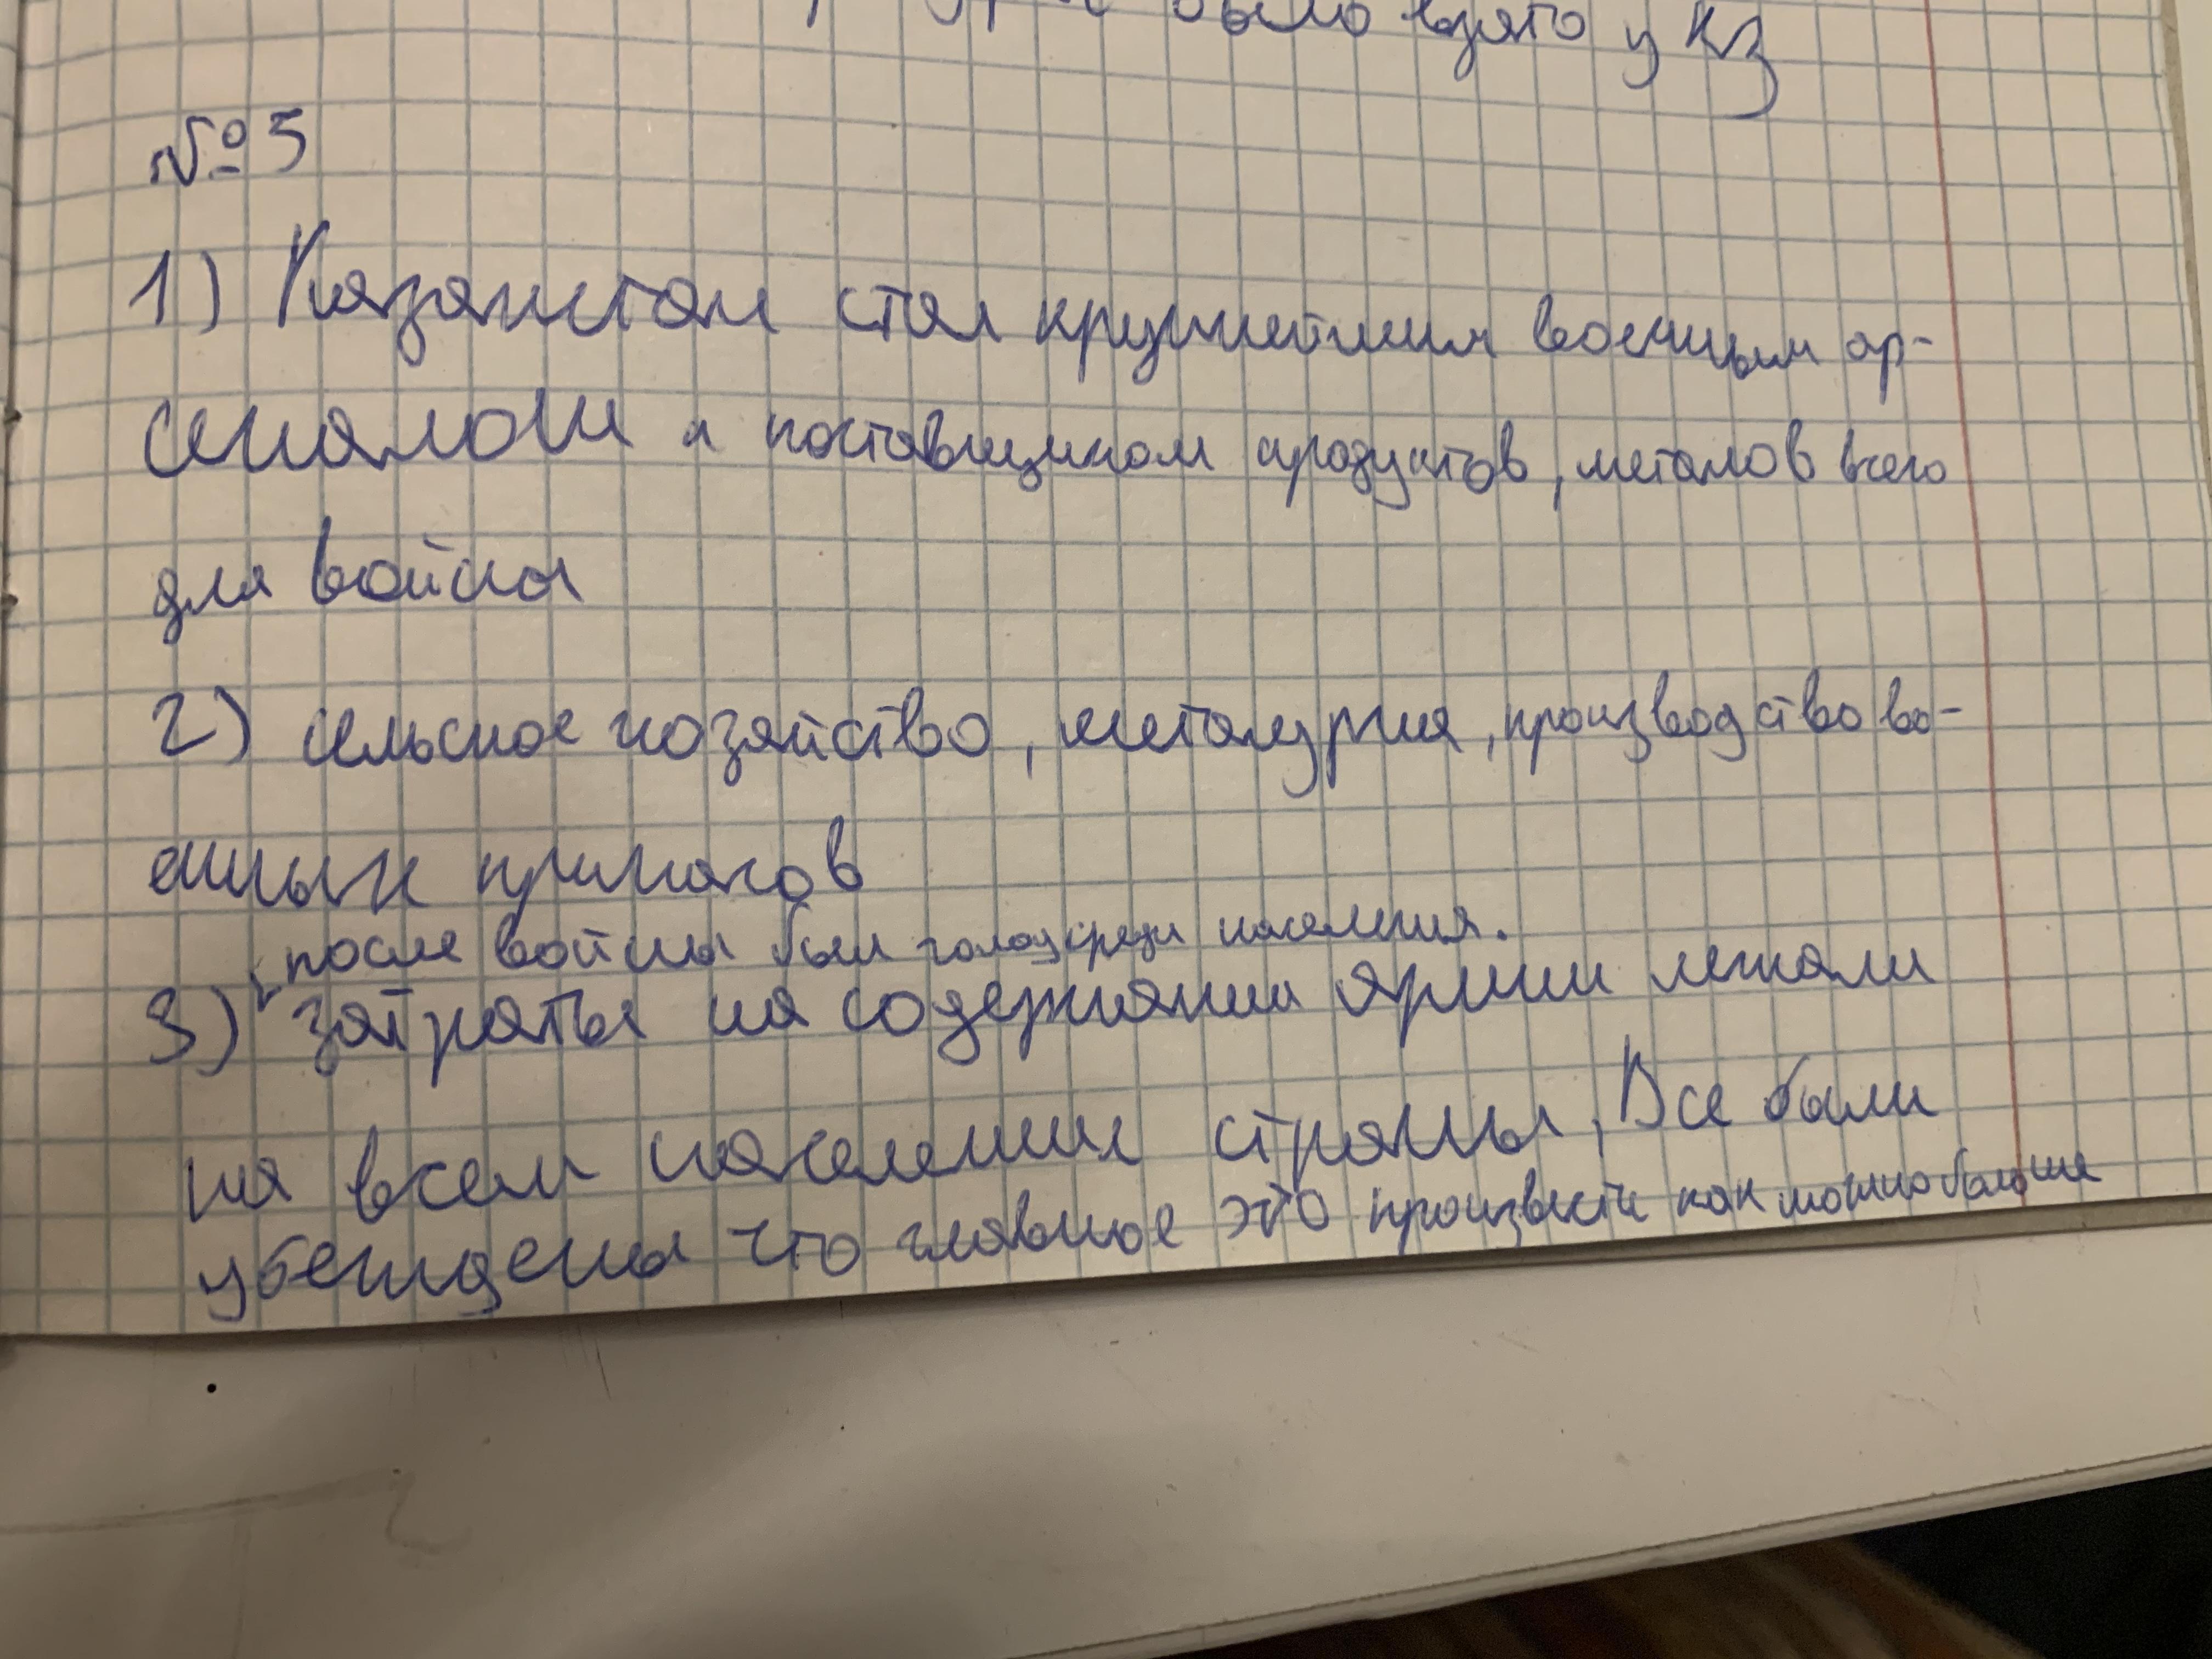 было взято у КЗ
№5
1) Казахстан стал крупнейшим военным ар-
сеналом и поставщиком продуктов, металов всего
для войны
2) сельское хозяйство, металургия, производство во-
енных припасов
после войны был голод среди населения.
3) затраты на содержании армии лежали
на всем населении страны, Все были
убеждены что главное это произвести как можно больше